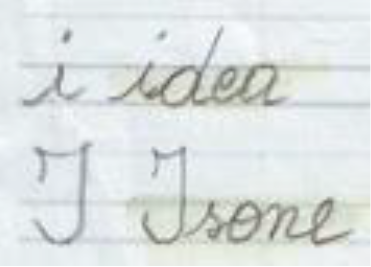 i idea
I Isone